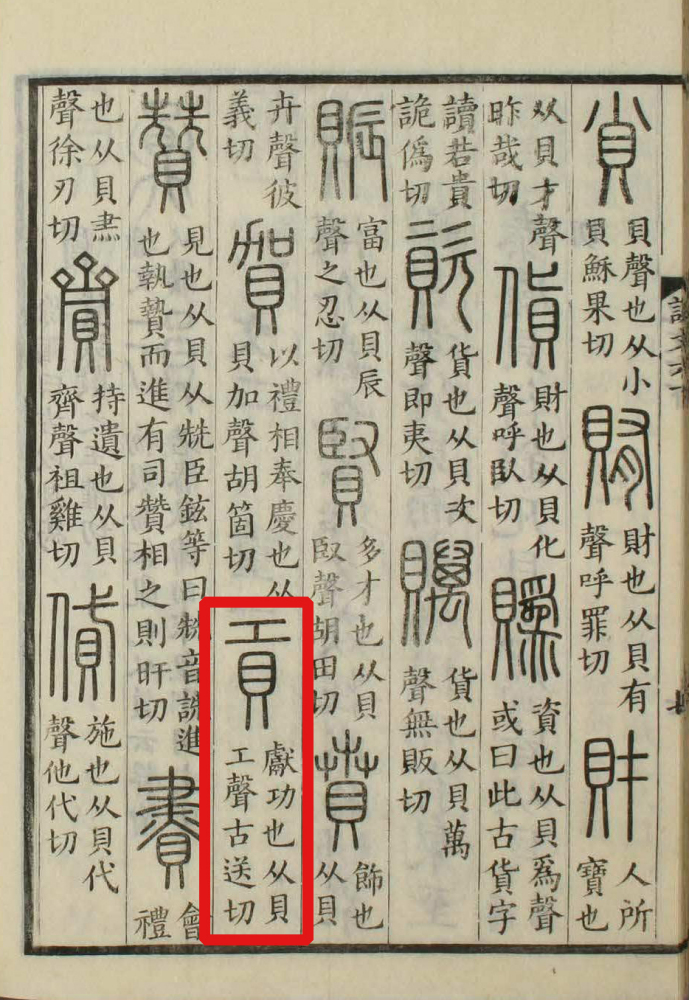 𧴪
貝聲也从小
貝穌果切
賄
財也从貝有
聲呼罪切
財
人所
寶也
从貝才聲
昨哉切
貨
財也从貝化
聲呼臥切
䞈
資也从貝爲聲
或曰此古貨字
讀若貴
詭僞切
資
貨也从貝次
聲即夷切
贎
貨也从貝萬
聲無販切
賑
富也从貝辰
聲之忍切
賢
多才也从貝
臤聲胡田切
賁
飾也
从貝
卉聲彼
義切
賀
以禮相奉慶也从
貝加聲胡箇切
貢
獻功也从貝
工聲古送切
贊
見也从貝从兟臣鉉等曰兟音詵進
也執贄而進有司贊相之則旰切
賮
會
禮
也从貝㶳
聲徐刃切
齎
持遺也从貝
齊聲祖雞切
貸
施也从貝代
聲他代切